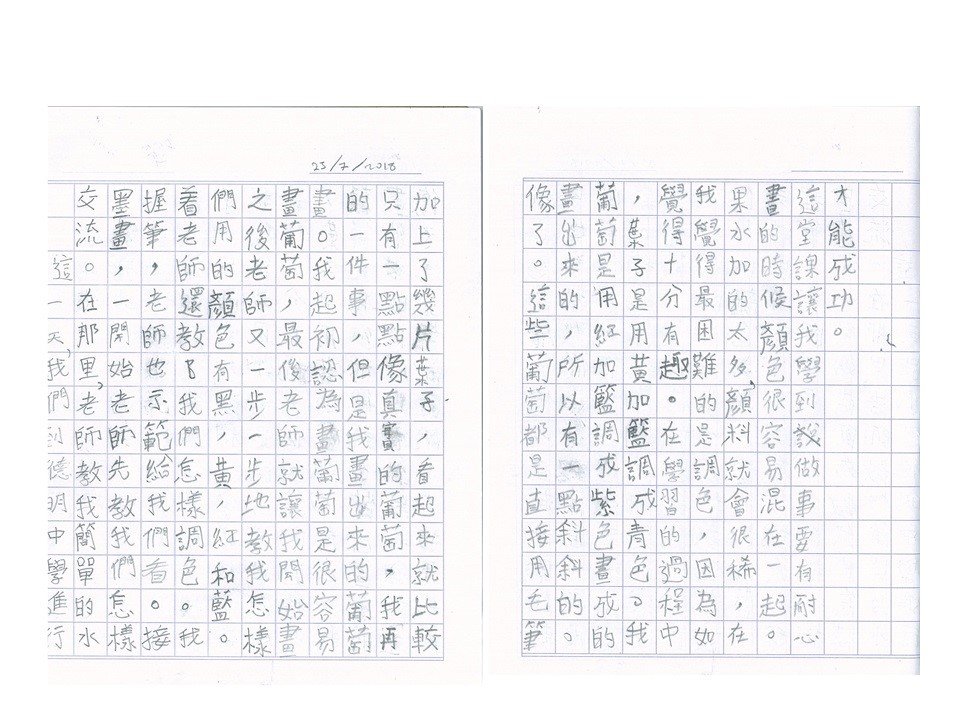 23/7/2018
這一天,我們到德明中學進行
交流。在那里,老師教我簡單的水
墨畫,一開始老師先教我們怎樣
握筆,老師也示範給我們看。接
着老師還教了我們怎樣調色。我
們用的顏色有黑,黃,紅和藍。
之後老師又一步一步地教我怎樣
畫葡萄,最後老師就讓我開始畫
畫。我起初認為畫葡萄是很容易
的一件事,但是我畫出來的葡萄
只有一點點像真實的葡萄,我再
加上了幾片葉子,看起來就比較
像了。這些葡萄都是直接用毛筆
畫出來的,所以有一點斜斜的。
葡萄是用紅加籃調成紫色畫成的
,葉子是用黃加籃調成青色。我
覺得十分有趣。在學習的過程中
我覺得最困難的是調色,因為如
果水加的太多,顏料就會很稀,在
畫的時候顏色很容易混在一起。
這堂課讓我學到說做事要有耐心
才能成功。